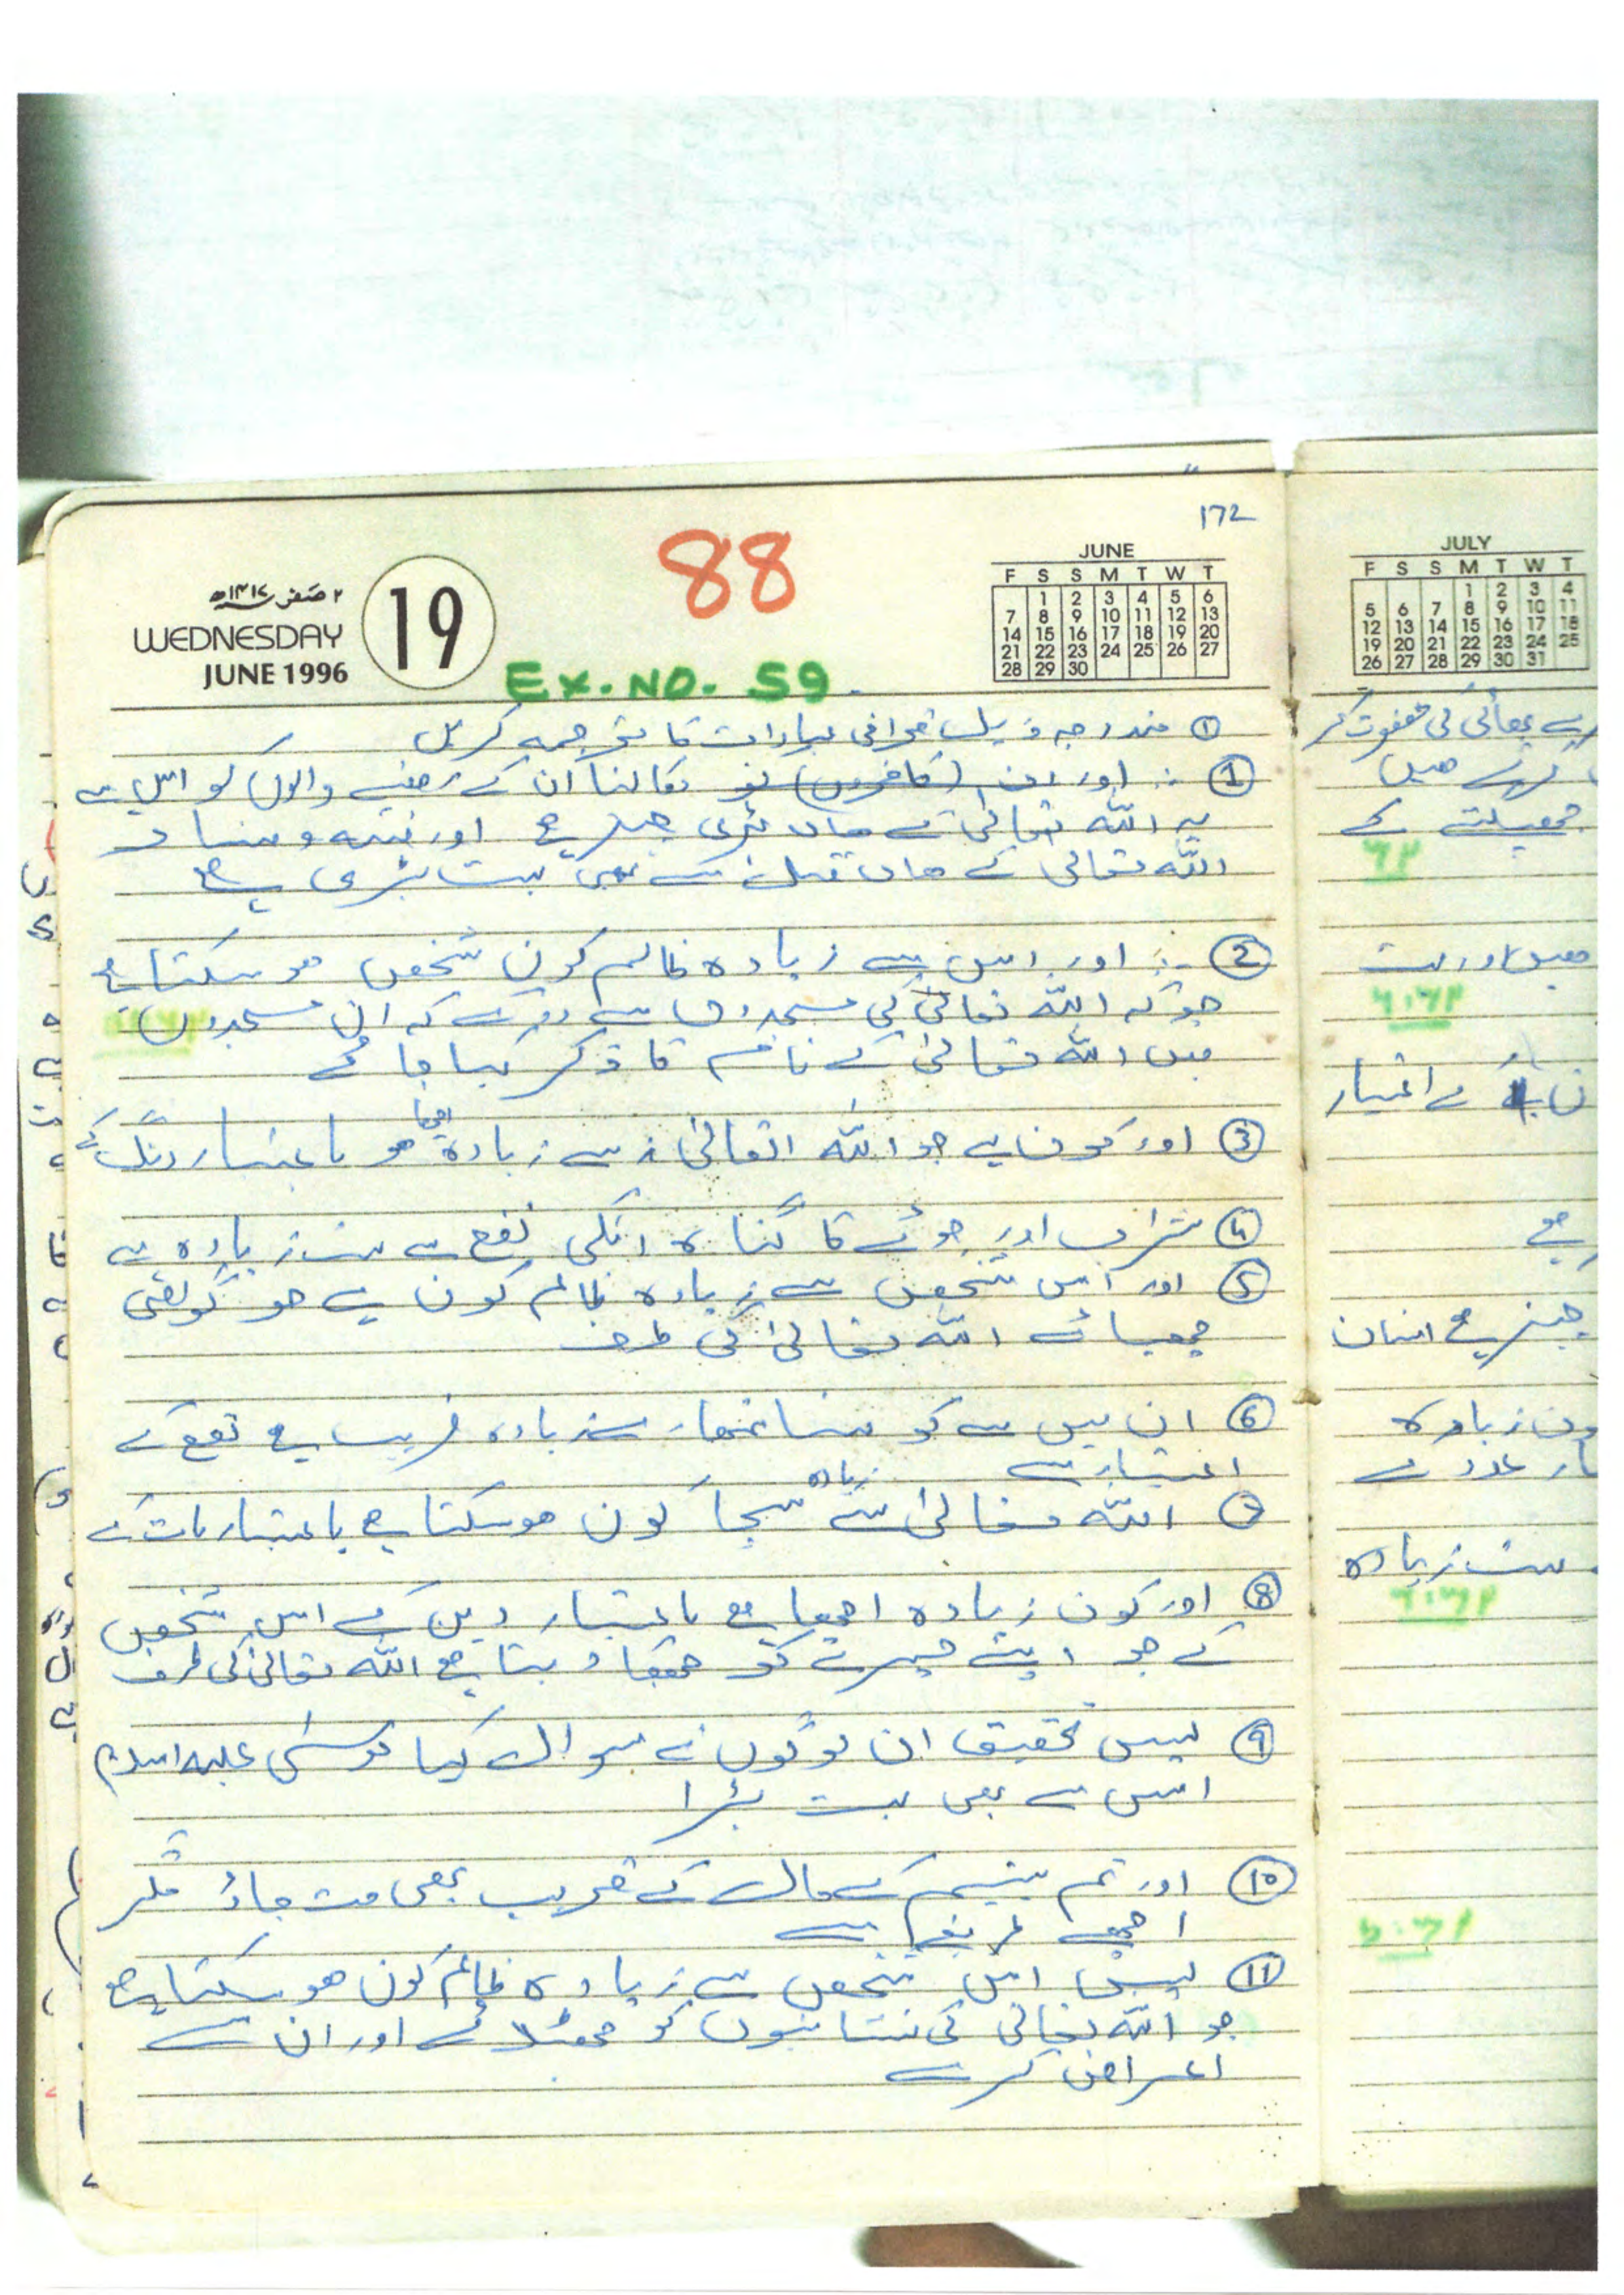 172
88
JUNE
F S S M T W T
1 2 3 4 5 6
7 8 9 10 11 12 13
14 15 16 17 18 19 20
21 22 23 24 25 26 27
28 29 30
۲ صفر ۱۴۱۷ھ
WEDNESDAY
JUNE 1996
19
EX. NO. 59
① مندرجہ ذیل قرآنی عبارات کا ترجمہ کریں
① اور ان (کافروں) نکالنا ان کے رہنے والوں کو اس سے
یہ اللہ تعالیٰ کے ہاں بڑی چیز ہے اور فتنہ و فساد
اللہ تعالیٰ کے ہاں قتل سے بھی بہت بڑی ہے
② اور اس سے زیادہ ظالم کون شخص ہو سکتا ہے
جو کہ اللہ تعالیٰ کی مسجدوں سے روکے کہ ان مسجدوں
میں اللہ تعالیٰ کے نام کا ذکر کیا جائے
③ اور کون ہے جو اللہ تعالیٰ سے زیادہ اچھا ہو باعتبار رنگ کے
④ شراب اور جوئے کا گناہ انکی نفع سے بہت زیادہ ہے
⑤ اور اس شخص سے زیادہ ظالم کون ہے جو گواہی
چھپائے اللہ تعالیٰ کی طرف
⑥ ان میں سے کونسا تمہارے زیادہ قریب ہے نفع کے
اعتبار سے
⑦ اللہ تعالیٰ سے زیادہ سچا کون ہو سکتا ہے باعتبار بات کے
⑧ اور کون زیادہ اچھا ہے باعتبار دین کے اس شخص
کے جو اپنے چہرے کو جھکا دیتا ہے اللہ تعالیٰ کی طرف
⑨ پس تحقیق ان لوگوں نے سوال کیا موسیٰ علیہ السلام
اس سے بھی بہت بڑا
⑩ اور تم یتیم کے مال کے قریب بھی مت جاؤ مگر
اچھے طریقے سے
⑪ پس اس شخص سے زیادہ ظالم کون ہو سکتا ہے
جو اللہ تعالیٰ کی نشانیوں کو جھٹلائے اور ان سے
اعراض کرے
JULY
F S S M T W T
1 2 3 4
5 6 7 8 9 10 11
12 13 14 15 16 17 18
19 20 21 22 23 24 25
26 27 28 29 30 31
بھائی کی
میں
اور
اختیار
ہے
چیز ہے انسان
زیادہ
عدد کے
بہت زیادہ